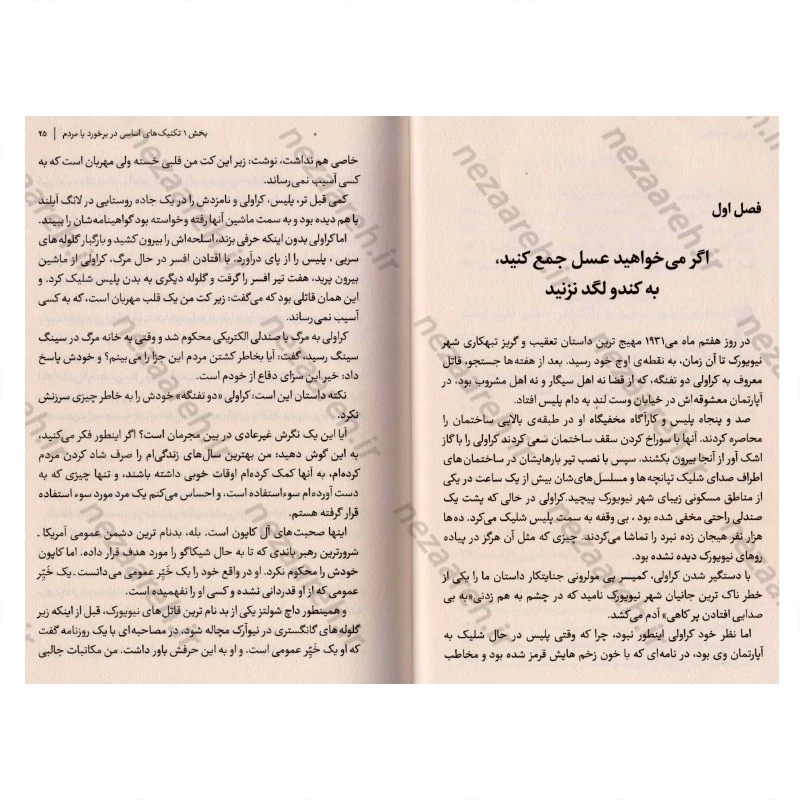 فصل اول
اگر می‌خواهید عسل جمع کنید،
به کندو لگد نزنید
در روز هفتم ماه می۱۹۳۱ مهیج ترین داستان تعقیب و گریز تبهکاری شهر
نیویورک تا آن زمان، به نقطه‌ی اوج خود رسید. بعد از هفته‌ها جستجو، قاتل
معروف به کراولی دو تفنگه، که از قضا نه اهل سیگار و نه اهل مشروب بود، در
آپارتمان معشوقه‌اش در خیابان وست لندِ به دام پلیس افتاد.
صد و پنجاه پلیس و کارآگاه مخفیگاه او در طبقه‌ی بالایی ساختمان را
محاصره کردند. آنها با سوراخ کردن سقف ساختمان سعی کردند کراولی را با گاز
اشک آور از آنجا بیرون بکشند. سپس با نصب تیر بارهایشان در ساختمان‌های
اطراف صدای شلیک تپانچه‌ها و مسلسل‌های‌شان بیش از یک ساعت در یکی
از مناطق مسکونی زیبای شهر نیویورک پیچید.کراولی در حالی که پشت یک
صندلی راحتی مخفی شده بود ، بی وقفه به سمت پلیس شلیک می‌کرد. ده‌ها
هزار نفر هیجان زده نبرد را تماشا می‌کردند. چیزی که مثل آن هرگز در پیاده
روهای نیویورک دیده نشده بود.
با دستگیر شدن کراولی، کمیسر پی مولرونی جنایتکار داستان ما را یکی از
خطر ناک ترین جانیان شهر نیویورک نامید که در چشم به هم زدنی«به بی
صدایی افتادن پر کاهی» آدم می‌کشد.
اما نظر خود کراولی اینطور نبود، چرا که وقتی پلیس در حال شلیک به
آپارتمان وی بود، در نامه‌ای که با خون زخم هایش قرمز شده بود و مخاطب
بخش ۱ تکنیک‌های اساسی در برخورد با مردم | ۲۵
خاصی هم نداشت، نوشت: زیر این کت من قلبی خسته ولی مهربان است که به
کسی آسیب نمی‌رساند.
کمی قبل تر، پلیس، کراولی و نامزدش را در یک جاده روستایی در لانگ آیلند
با هم دیده بود و به سمت ماشین آنها رفته وخواسته بود گواهینامه‌شان را ببیند.
اما کراولی بدون اینکه حرفی بزند، اسلحه‌اش را بیرون کشید و بارگبار گلوله‌های
سربی ، پلیس را از پای درآورد. با افتادن افسر در حال مرگ، کراولی از ماشین
بیرون پرید، هفت تیر افسر را گرفت و گلوله دیگری به بدن پلیس شلیک کرد. و
این همان قاتلی بود که می‌گفت: زیر کت من یک قلب مهربان است، که به کسی
آسیب نمی‌رساند.
کراولی به مرگ با صندلی الکتریکی محکوم شد و وقتی به خانه مرگ در سینگ
سینگ رسید، گفت: آیا بخاطر کشتن مردم این جزا را می‌بینم؟ و خودش پاسخ
داد: خیر این سزای دفاع از خودم است.
نکته داستان این است: کراولی «دو تفنگه» خودش را به خاطر چیزی سرزنش
نکرد.
آیا این یک نگرش غیرعادی در بین مجرمان است؟ اگر اینطور فکر می‌کنید،
به این گوش دهید: من بهترین سال‌های زندگی‌ام را صرف شاد کردن مردم
کرده‌ام، به آنها کمک کرده‌ام اوقات خوبی داشته باشند، و تنها چیزی که به
دست آورده‌ام سوء‌استفاده است، و احساس می‌کنم یک مرد مورد سوء استفاده
قرار گرفته هستم.
اینها صحبت‌های آل کاپون است. بله، بدنام ترین دشمن عمومی آمریکا ـ
شرورترین رهبر باندی که تا به حال شیکاگو را مورد هدف قرار داده. اما کاپون
خودش را محکوم نکرد. او در واقع خود را یک خَیِّر عمومی می‌دانست ـ یک خَیِّر
عمومی که از او قدردانی نشده و کسی او را نفهمیده» است.
و همینطور داچ شولتز یکی از بد نام ترین قاتل‌های نیویورک، قبل از اینکه زیر
گلوله‌های گانگستری در نیوآرک مچاله شود. در مصاحبه‌ای با یک روزنامه گفت
که او یک خَیِّر عمومی است. و او به این حرفش باور داشت. من مکاتبات جالبی
nezaareh.ir